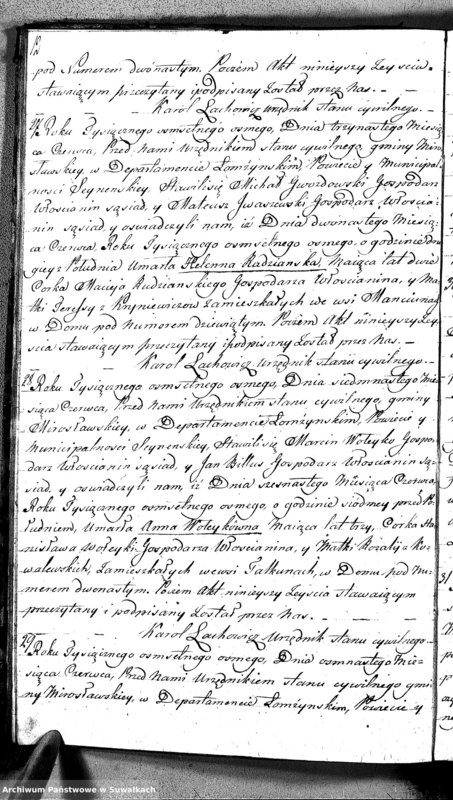 pod Numerem dwónastym. Poczem Akt ninieyszy Zeyscia
stawaiącym przeczytany i podpisany Został przez nas. —
Karol Lachowicz Urzędnik stanu cywilnego. —
27. Roku Tysiącznego osmsetnego osmego, Dnia trzynastego Miesią-
ca Czerwca, Przed Nami Urzędnikiem stanu cywilnego, gminy Miro-
sławskiey, w Departamencie Łomżynskim, Powiecie y Municipal-
nosci Seynenskiey, Stawilisię Michał Gwozdowski Gospodarz
Włoscianin sąsiad, y Mateusz Gospodarz Włoscia-
nin sąsiad, y oswiadczyli nam, iż Dnia dwónastego Miesią-
ca Czerwca, Roku Tysiącznego osmsetnego osmego, o godzinie Dru-
giey z Południa Umarła Helenna Radzianska, Maiąca lat dwie
Corka Macieja Rudzianskiego Gospodarza Włoscianina, y Ma-
tki Teressy z Zamieszkałych we wsi
w Domu pod Numerem dziewiątym. Poczem Akt ninieyszy Zey-
scia stawaiącym przeczytany i podpisany Został przez nas. —
Karol Lachowicz Urzędnik stanu cywilnego. —
28. Roku Tysiącznego osmsetnego osmego, Dnia siedmnastego Mie-
siąca Czerwca, Przed Nami Urzędnikiem stanu cywilnego, gminy
Mirosławskiey, w Departamencie Łomżynskim, Powiecie y
Municipalnosci Seynenskiey, Stawilisię Marcin Woleyko Gospo-
darz Włoscianin sąsiad, y Jan Billus Gospodarz Włoscianin sąs-
siad, y oswiadczyli nam, iż Dnia szesnastego Miesiąca Czerwca,
Roku Tysiącznego osmsetnego osmego, o godzinie siódmey przed Po-
łudniem, Umarła Anna Woleykówna Maiąca lat trzy, Corka Sta-
nisława Woleyki Gospodarza Włoscianina, y Matki Rozalij z Ko-
walewskich, Zamieszkałych we wsi Tatkunach, w Domu pod Nu-
merem dwónastym. Poczem Akt ninieyszy Zeyscia stawaiącym
przeczytany i podpisany Został przez nas. —
Karol Lachowicz Urzędnik stanu cywilnego —
29. Roku Tysiącznego osmsetnego osmego, Dnia osmnastego Mie-
siąca Czerwca, Przed Nami Urzędnikiem stanu cywilnego gmi-
ny Mirosławskiey, w Departamencie Łomżynskim, Powiecie y
31
Archiwum Państwowe w Suwałkach